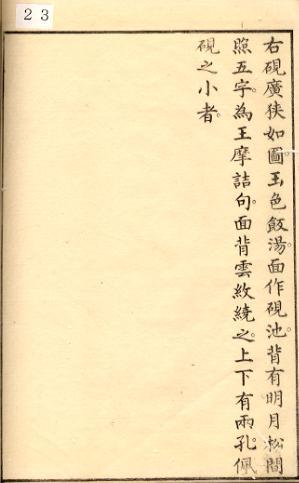 23
右硯廣狹如圖。玉色飯湯。面作硯池。背有明月松間
照五字。為王摩詰句。面背雲紋繞之。上下有兩孔。佩
硯之小者。